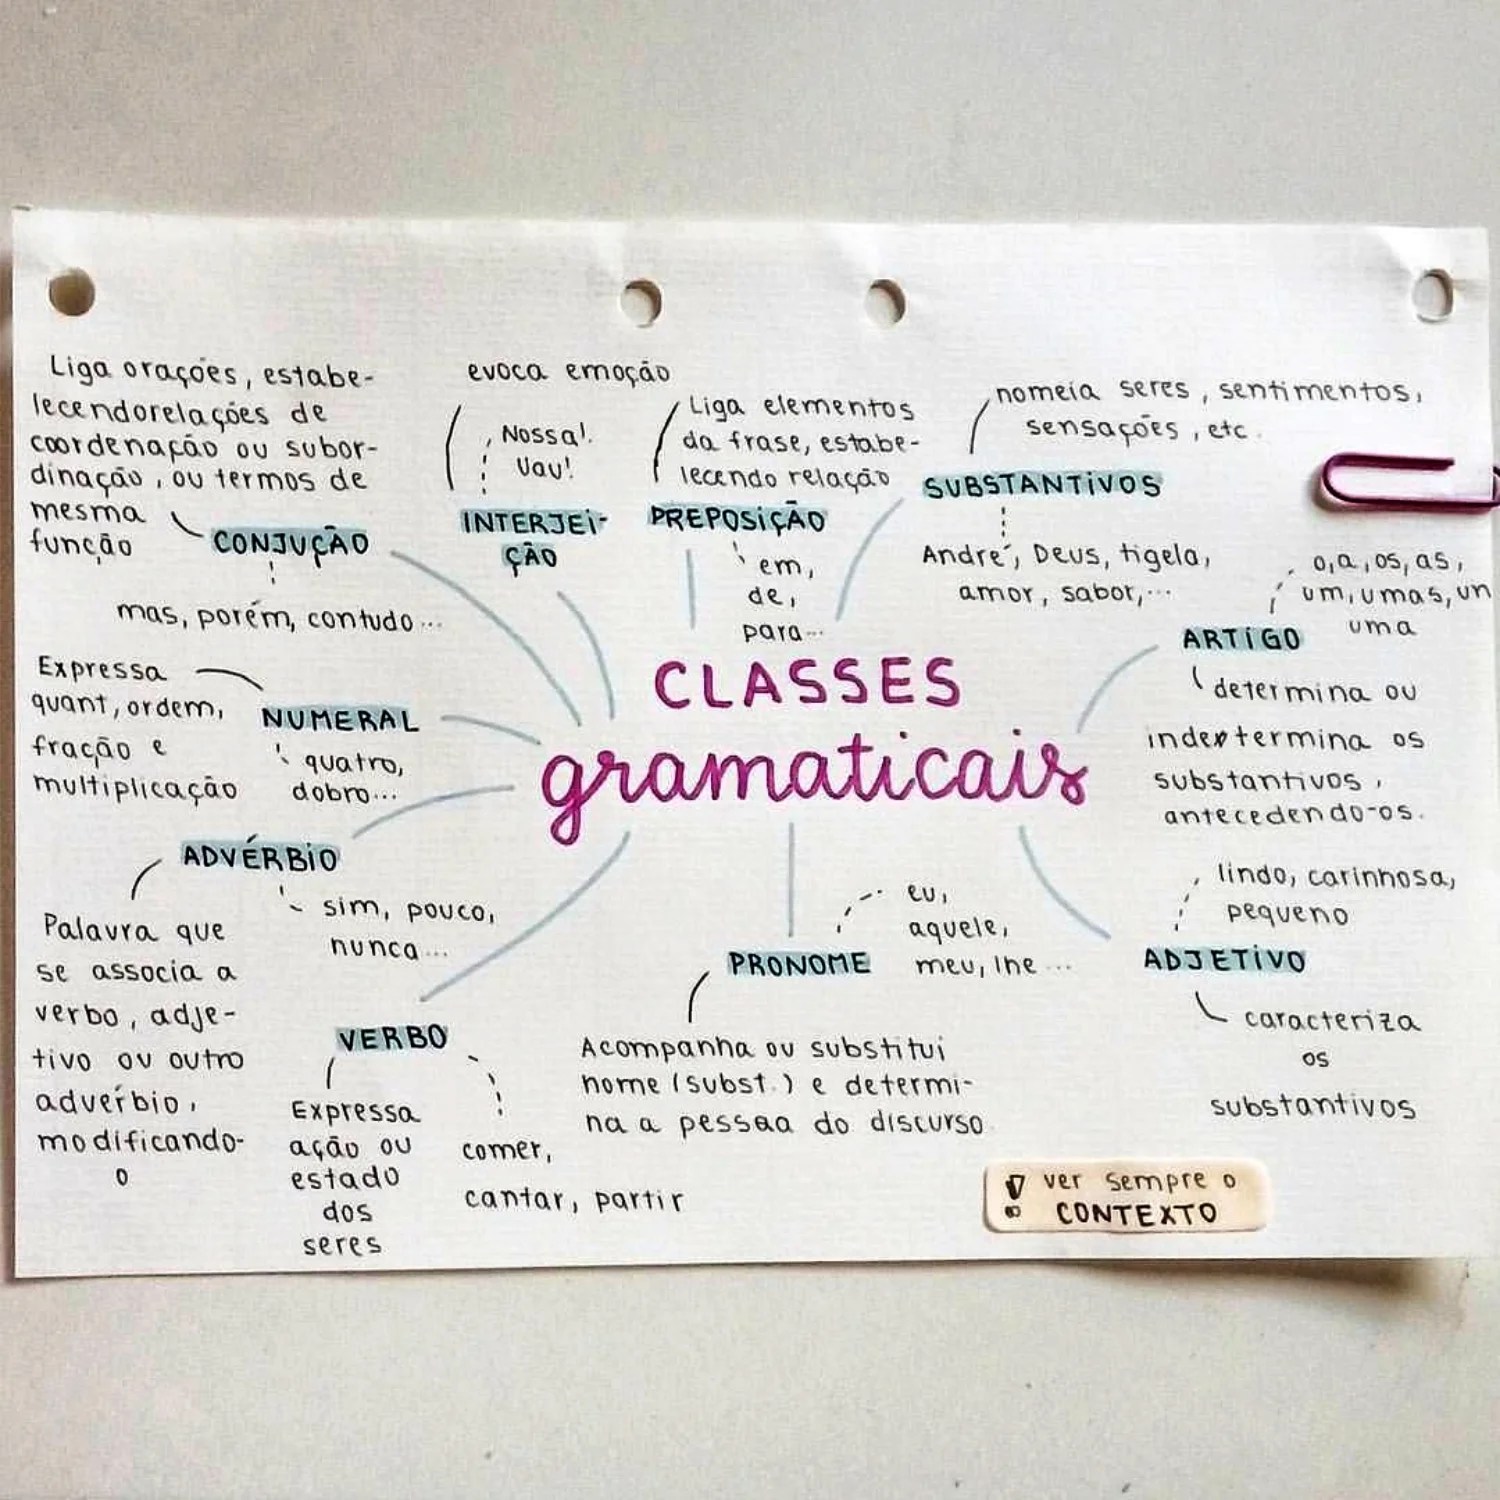 Liga orações, estabe-
lecendorelações de
coordenação ou subor-
dinação, ou termos de
mesma
função
CONJUÇÃO
mas, porém, contudo...
evoca emoção
Nossa!
Uau!
INTERJEI-
ÇÃO
Liga elementos
da frase, estabe-
lecendo relação
PREPOSIÇÃO
em,
de,
para...
nomeia seres, sentimentos,
sensações, etc.
SUBSTANTIVOS
André, Deus, tigela,
amor, sabor,...
o,a,os,as,
um,umas,un
uma
ARTIGO
determina ou
indextermina os
substantivos,
antecedendo-os.
CLASSES
gramaticais
Expressa
quant, ordem,
fração e
multiplicação
NUMERAL
quatro,
dobro...
ADVÉRBIO
sim, pouco,
nunca...
Palavra que
se associa a
verbo, adje-
tivo ou outro
advérbio,
modificando-
o
VERBO
Expressa
ação ou
estado
dos
seres
comer,
cantar, partir
PRONOME
eu,
aquele,
meu, lhe...
Acompanha ou substitui
nome (subst.) e determi-
na a pessaa do discurso
lindo, carinhosa,
pequeno
ADJETIVO
caracteriza
os
substantivos
! ver sempre o
CONTEXTO